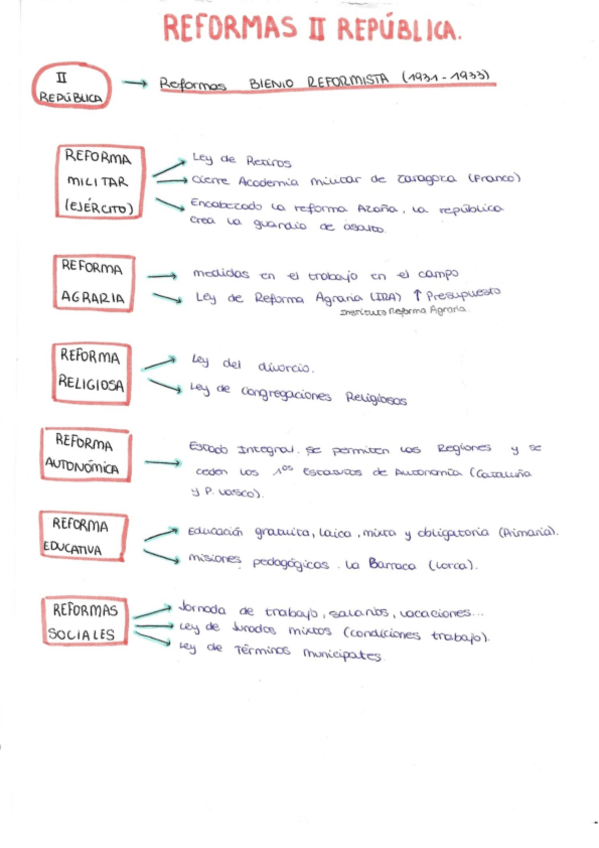 REFORMAS II REPÚBLICA.
II
REPÚBLICA
Reformas BIENIO REFORMISTA (1931-1933)
REFORMA
MILITAR
(EJÉRCITO)
Ley de Retiros
Cierre Academia militar de Zaragoza (Franco)
Encabezado la reforma Azaña, la república
crea la guardia de asalto.
REFORMA
AGRARIA
medidas en el trabajo en el campo
Ley de Reforma Agraria (IRA) ↑ Presupuesto
Instituto Reforma Agraria.
REFORMA
RELIGIOSA
Ley del divorcio.
Ley de Congregaciones Religiosas
REFORMA
AUTONÓMICA
Estado Integral. Se permiten las Regiones y se
ceden los 1os Estatutos de Autonomía (Cataluña
y P. Vasco).
REFORMA
EDUCATIVA
Educación gratuita, laica, mixta y obligatoria (Primaria).
misiones pedagógicas. La Barraca (Lorca).
REFORMAS
SOCIALES
Jornada de trabajo, salarios, vacaciones...
Ley de Jurados mixtos (condiciones trabajo).
Ley de Términos municipales.